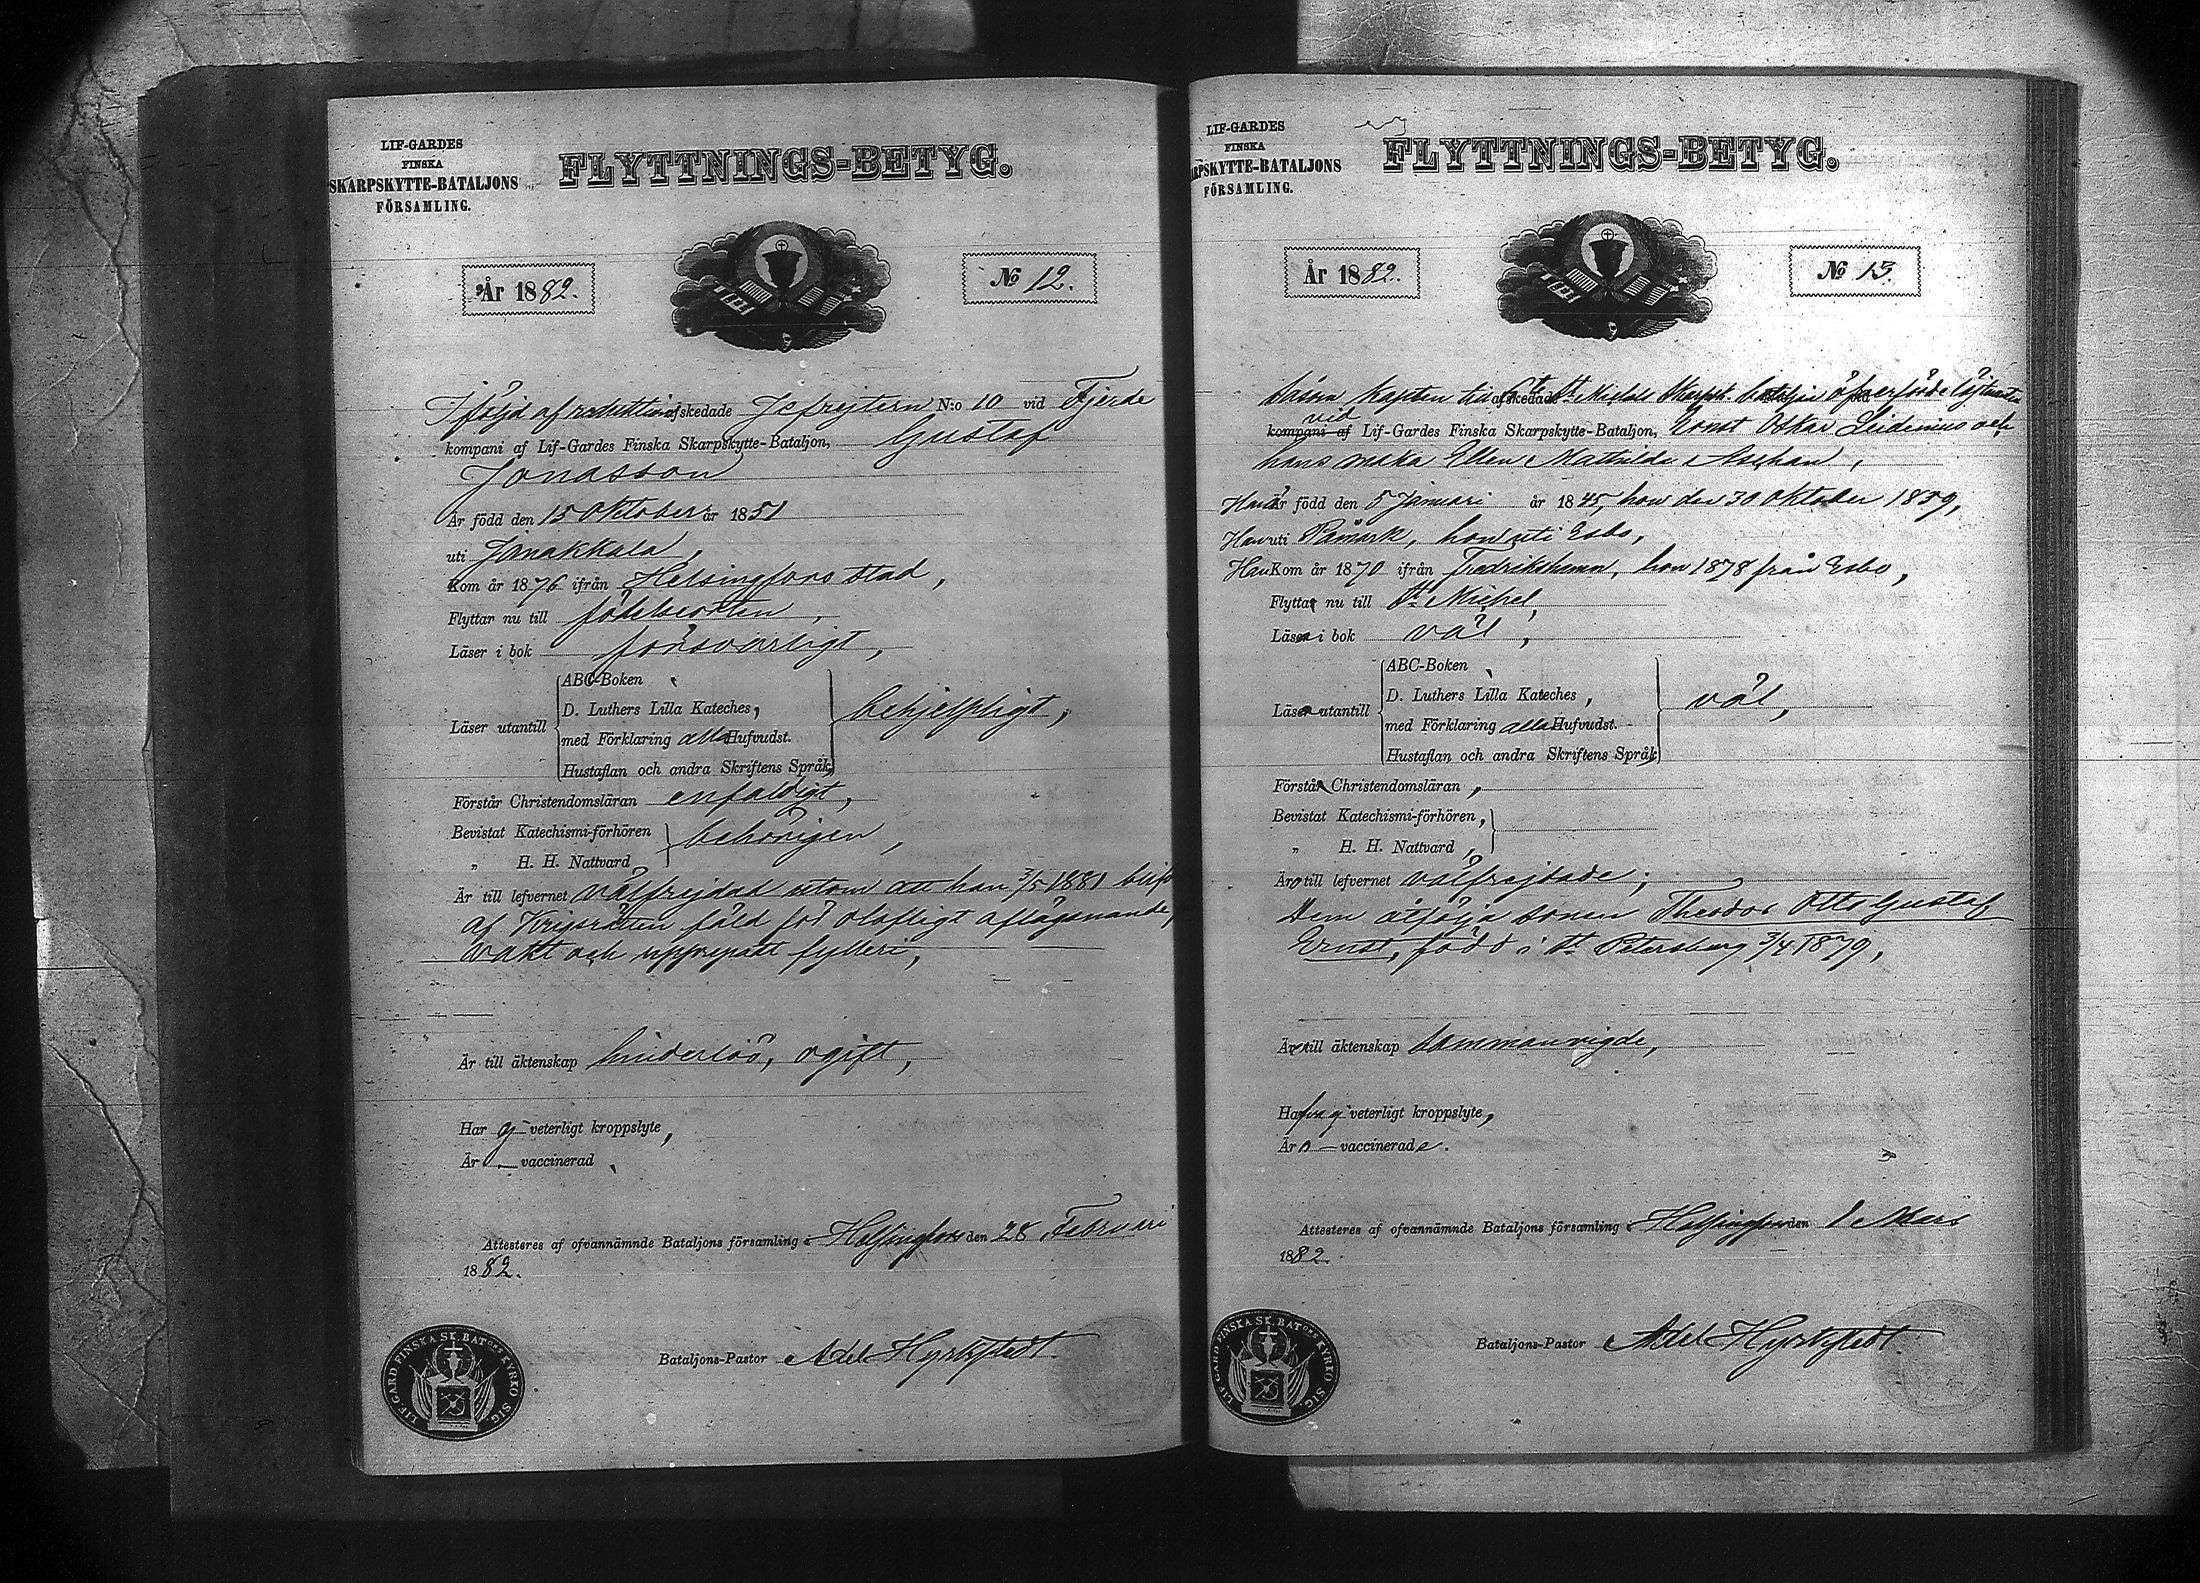 LIF-GARDES
FINSKA
SKARPSKYTTE-BATALJONS
FÖRSAMLING.
FLYTTNINGS-BETYG.
År 1882.
No 12.
I följd af reduktion afskedade Jefrejtern N:o 10 vid Fjerde
kompani af Lif-Gardes Finska Skarpskytte-Bataljon, Gustaf
Jonasson
Är född den 15 Oktober år 1851
uti Janakkala,
Kom år 1876 ifrån Helsingfors stad,
Flyttar nu till födelseorten,
Läser i bok försvarligt,
Läser utantill
ABC-Boken,
D. Luthers Lilla Kateches,
med Förklaring alla Hufvudst.
Hustaflan och andra Skriftens Språk,
behjelpligt,
Förstår Christendomsläran enfaldigt,
Bevistat Katechismi-förhören
„ H. H. Nattvard
behörigen,
Är till lefvernet välfrejdad utom att han 3/5 1881 blifv
af Krigsrätten fäld för olofligt aflägsnande,
vakt och upprepadt fylleri,
Är till äktenskap hinderlös, ogift,
Har ej veterligt kroppslyte,
Är — vaccinerad,
Attesteres af ofvannämnde Bataljons församling i Helsingfors den 28 Februari
1882.
Bataljons-Pastor Adel Hyrkstedt.
LIF GARD FINSKA SK. BATONS KYRKO SIG.
LIF-GARDES
FINSKA
RPSKYTTE-BATALJONS
FÖRSAMLING.
FLYTTNINGS-BETYG.
År 1882.
No 13.
Kapten till afskedade St Michels Skarpsk. bataljon öfverförde Löjtnanten
kompani af vid Lif-Gardes Finska Skarpskytte-Bataljon, Ernst Oskar Leidenius och
hans maka Ellen Mathilda Aschan,
Han Är född den 5 Januari år 1845, hon den 30 Oktober 1859,
Han uti Påmark, hon uti Esbo,
Han Kom år 1870 ifrån Fredrikshamn, hon 1878 från Esbo,
Flytta nu till St Michel,
Läsa i bok väl,
Läsa utantill
ABC-Boken,
D. Luthers Lilla Kateches,
med Förklaring alla Hufvudst.
Hustaflan och andra Skriftens Språk
väl,
Förstå Christendomsläran,
Bevistat Katechismi-förhören,
„ H. H. Nattvard,
Äro till lefvernet välfrejdade;
Dem åtfölja sonen Theodor Otto Gustaf
Ernst, född i St Petersburg 3/4 1879,
Äro till äktenskap sammanvigde,
Hafva ej veterligt kroppslyte,
Äro — vaccinerade.
Attesteres af ofvannämnde Bataljons församling i Helsingfors den 1 Mars
1882.
Bataljons-Pastor Adel Hyrkstedt.
LIF GARD FINSKA SK. BATONS KYRKO SIG.